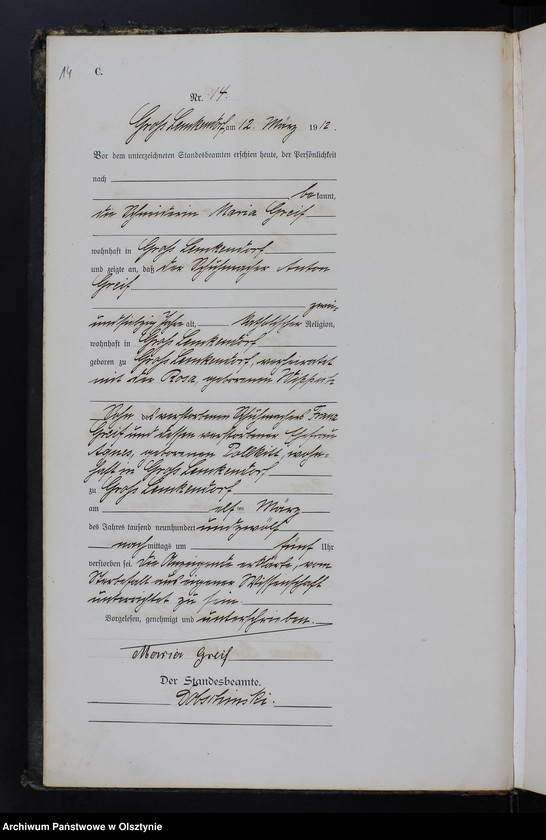 14
C.
Nr. 14.
Groß Lemkendorf, am 12. März 1912.
Vor dem unterzeichneten Standesbeamten erschien heute, der Persönlichkeit
nach
be kannt,
die Schneiderin Maria Greif
wohnhaft in Groß Lemkendorf
und zeigte an, daß der Schuhmacher Anton
Greif
zwei-
undsiebzig Jahre alt, katholischer Religion,
wohnhaft in Groß Lemkendorf
geboren zu Groß Lemkendorf, verheiratet
mit der Rosa, geborenen
Sohn des verstorbenen Schuhmachers Franz
Greif und dessen verstorbener Ehefrau
Agnes, geborenen, wohn-
haft in Groß Lemkendorf
zu Groß Lemkendorf
am elften März
des Jahres tausend neunhundert und zwölf
nach mittags um fünf Uhr
verstorben sei. Die Anzeigende erklärte, vom
Sterbefall aus eigener Wissenschaft
unterrichtet zu sein.
Vorgelesen, genehmigt und unterschrieben.
Maria Greif
Der Standesbeamte.
Archiwum Państwowe w Olsztynie